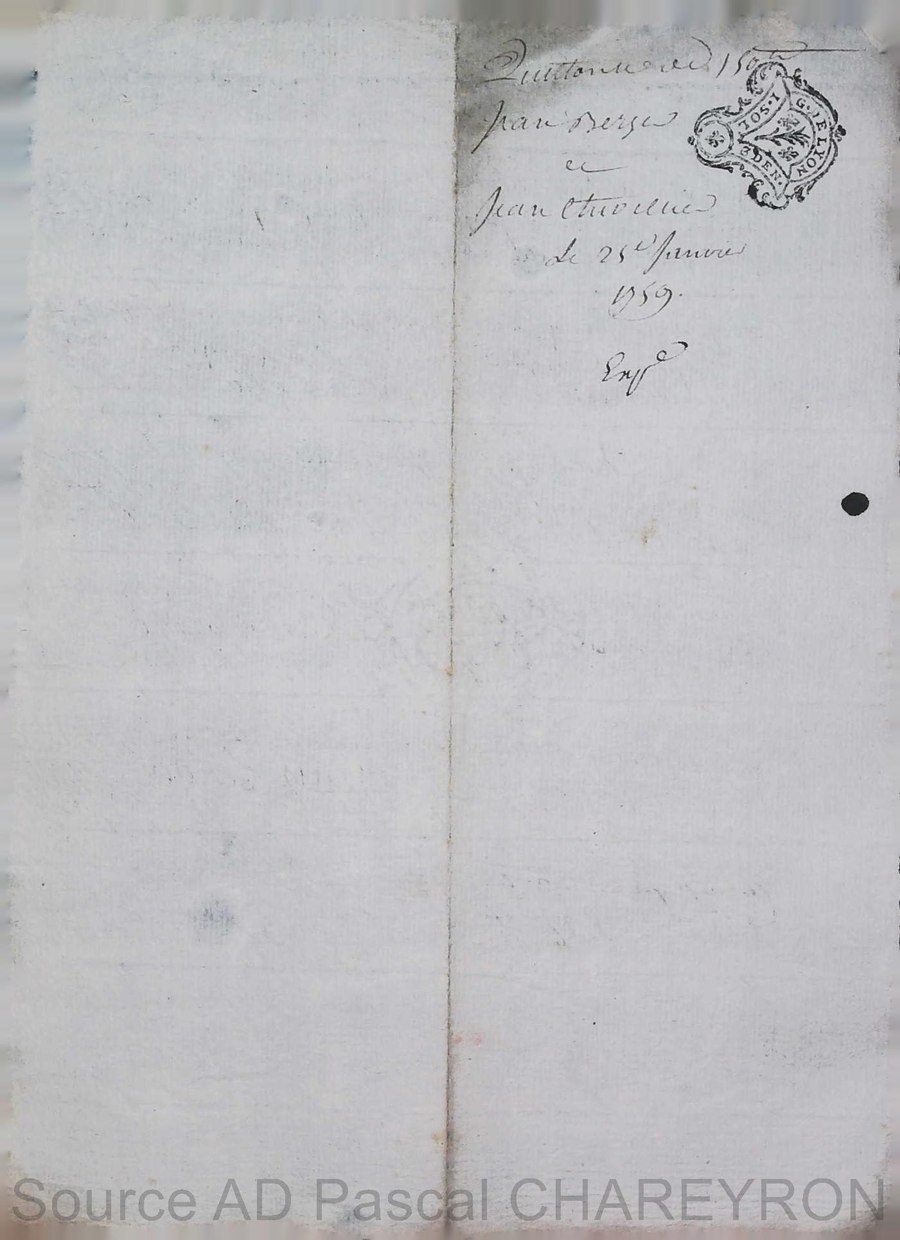 Quittance de 150
Jean Berger
et
Jean Chuvellier
Le 25e Janvier
1759.
Exp.e
G. DE LYON
I SOL.
3 DEN.
Source AD Pascal CHAREYRON